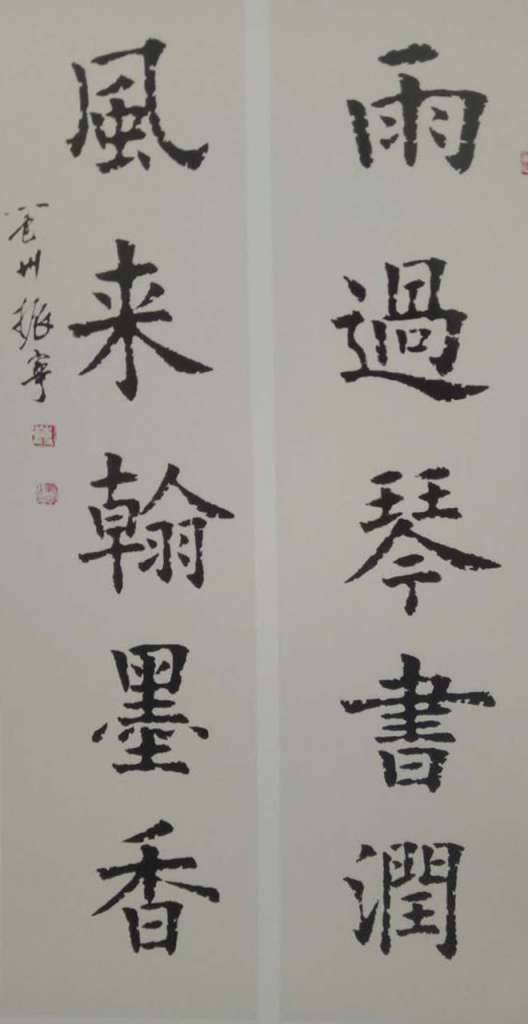 雨過琴書潤
風来翰墨香
振寧